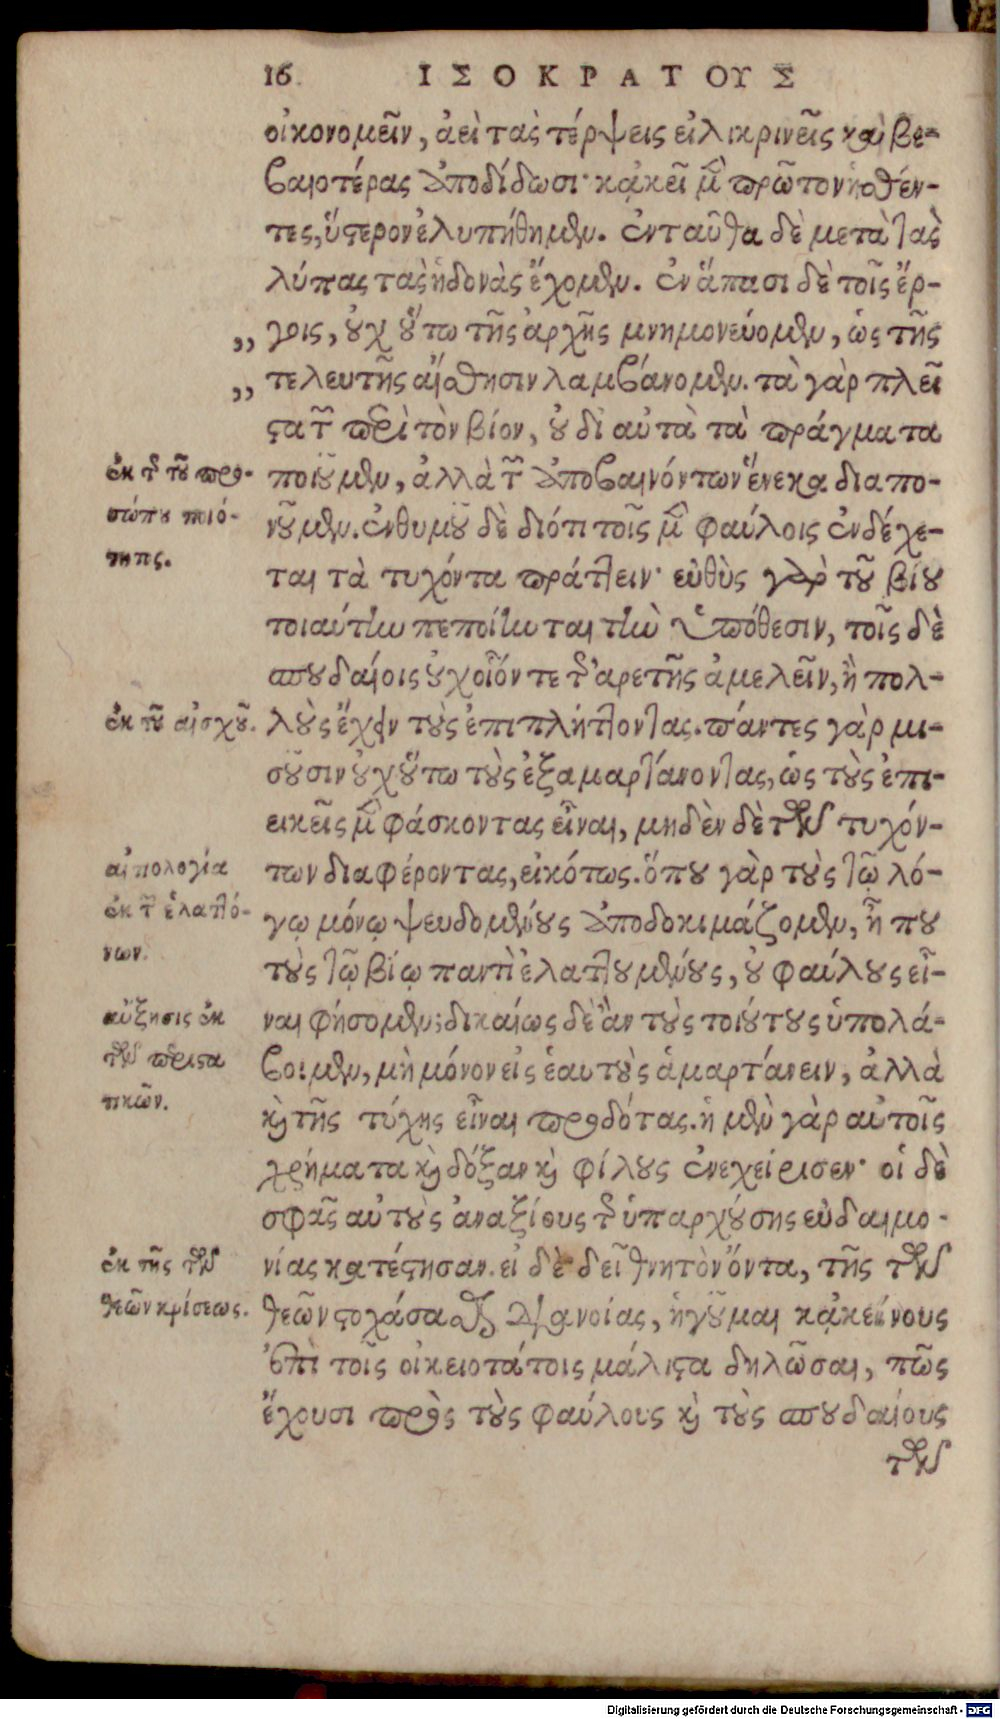 16 ΙΣΟΚΡΑΤΟΥΣ
οἰκονομεῖν, ἀεὶ τὰς τέρψεις εἰλικρινεῖς καὶ βε-
βαιοτέρας ἀποδίδωσι· κᾀκεῖ μὲν πρῶτον ἡσθέν-
τες, ὕστερον ἐλυπήθημεν. ἐνταῦθα δὲ μετὰ τὰς
λύπας τὰς ἡδονὰς ἔχομεν. ἐν ἅπασι δὲ τοῖς ἔρ-
,, γοις, οὐχ οὕτω τῆς ἀρχῆς μνημονεύομεν, ὡς τῆς
,, τελευτῆς αἴσθησιν λαμβάνομεν. τὰ γὰρ πλεῖ
στα τῶν περὶ τὸν βίον, οὐ δι αὐτὰ τὰ πράγματα
ποιοῦμεν, ἀλλὰ τῶν ἀποβαινόντων ἕνεκα διαπο-
νοῦμεν. ἐνθυμοῦ δὲ διότι τοῖς μὲν φαύλοις ἐνδέχε-
ται τὰ τυχόντα πράττειν· εὐθὺς γὰρ τοῦ βίου
τοιαύτην πεποίηνται τὴν ὑπόθεσιν, τοῖς δὲ
σπουδαίοις οὐχ οἷόν τε τῆς ἀρετῆς ἀμελεῖν, ἢ πολ-
λοὺς ἔχειν τοὺς ἐπιπλήττοντας. πάντες γὰρ μι-
σοῦσιν οὐχ οὕτω τοὺς ἐξαμαρτάνοντας, ὡς τοὺς ἐπι-
εικεῖς μὲν φάσκοντας εἶναι, μηδὲν δὲ τῶν τυχόν-
των διαφέροντας, εἰκότως. ὅπου γὰρ τοὺς τῷ λό-
γῳ μόνῳ ψευδομένους ἀποδοκιμάζομεν, ἦ που
τοὺς τῷ βίῳ παντὶ ἐλαττουμένους, οὐ φαύλους εἶ-
ναι φήσομεν; δικαίως δὲ ἂν τοὺς τοιούτους ὑπολά-
βοιμεν, μὴ μόνον εἰς ἑαυτοὺς ἁμαρτάνειν, ἀλλὰ
καὶ τῆς τύχης εἶναι προδότας. ἡ μὲν γὰρ αὐτοῖς
χρήματα καὶ δόξαν καὶ φίλους ἐνεχείρισεν· οἱ δὲ
σφᾶς αὐτοὺς ἀναξίους τῆς ὑπαρχούσης εὐδαιμο-
νίας κατέστησαν. εἰ δὲ δεῖ θνητὸν ὄντα, τῆς τῶν
θεῶν στοχάσασθαι διανοίας, ἡγοῦμαι κᾀκείνους
ἐπὶ τοῖς οἰκειοτάτοις μάλιστα δηλῶσαι, πῶς
ἔχουσι πρὸς τοὺς φαύλους καὶ τοὺς σπουδαίους
τῶν
ἐκ τῆς τοῦ προ-
σώπου ποιό-
τητος.
ἐκ τοῦ αἰσχροῦ.
αἰτιολογία
ἐκ τῶν ἐλαττό-
νων.
αὔξησις ἐκ
τῶν περιστα
τικῶν.
ἐκ τῆς τῶν
θεῶν κρίσεως.
Digitalisierung gefördert durch die Deutsche Forschungsgemeinschaft - DFG